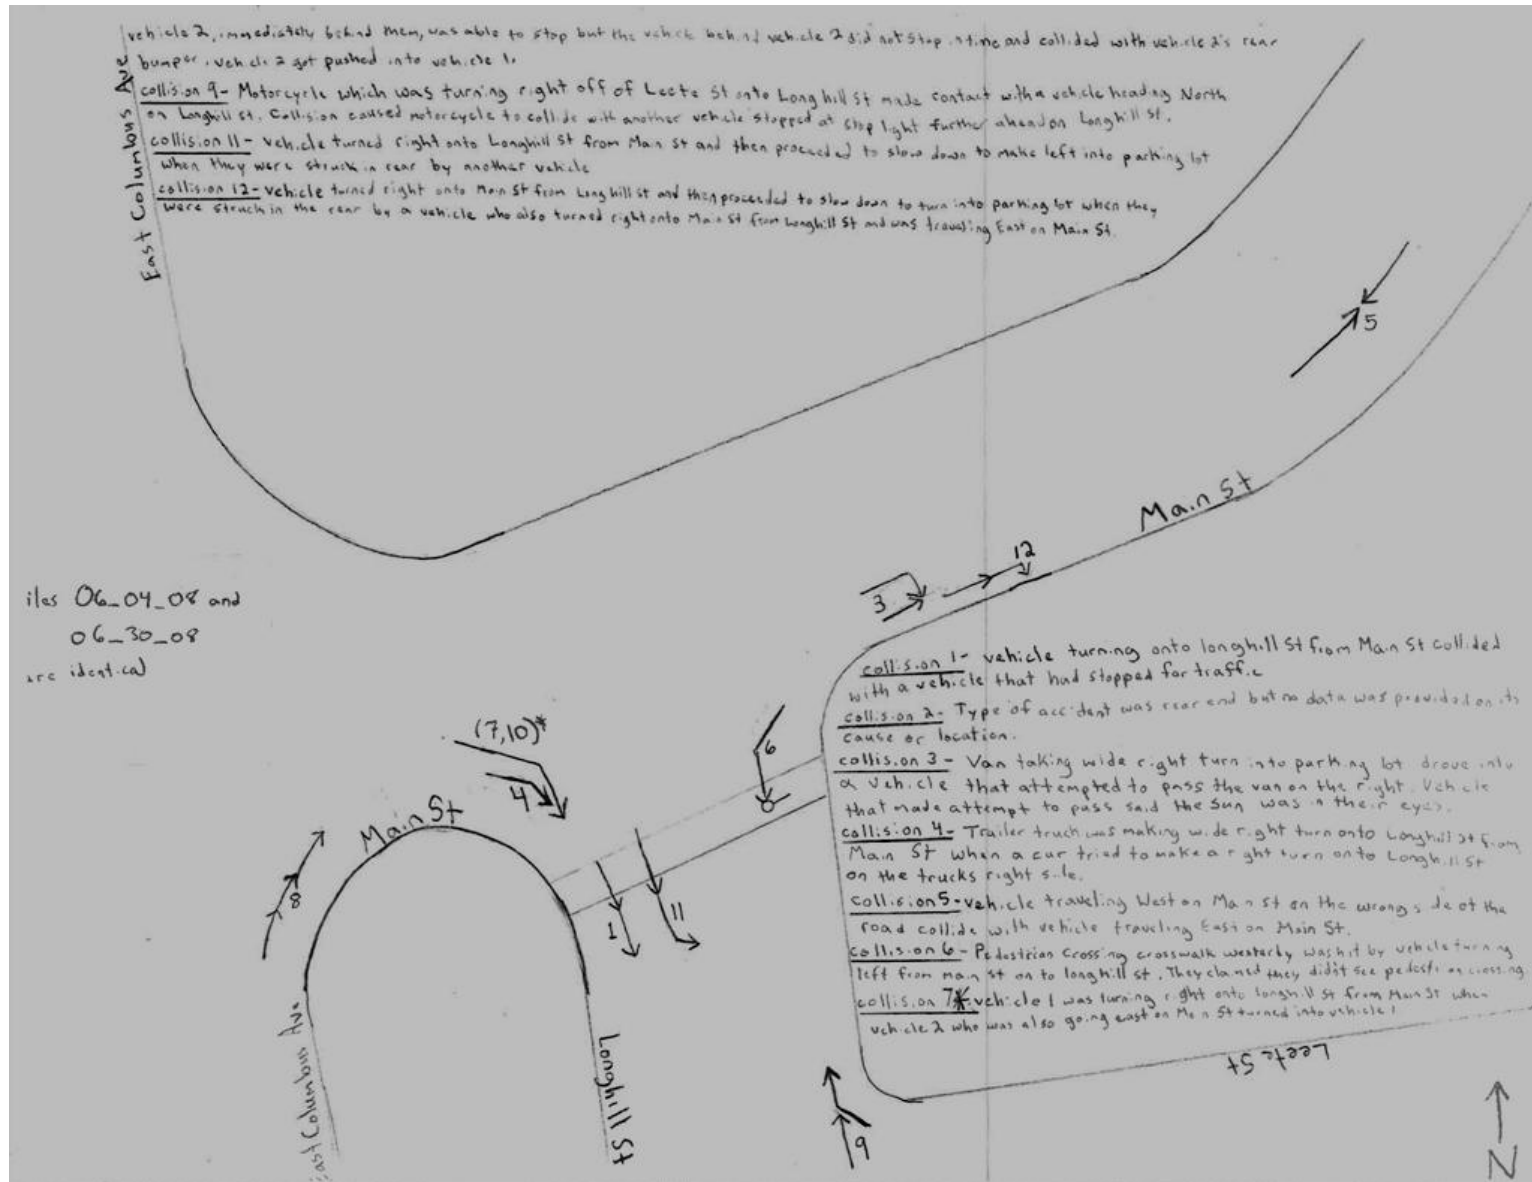 East Columbus Ave
vehicle 2, immediately behind them, was able to stop but the vehicle behind vehicle 2 did not stop in time and collided with vehicle 2's rear
bumper. vehicle 2 got pushed into vehicle 1.
collision 9- Motorcycle which was turning right off of Leete St onto Longhill St made contact with a vehicle heading North
on Longhill St. Collision caused motorcycle to collide with another vehicle stopped at stop light further ahead on Longhill St.
collision 11- vehicle turned right onto Longhill St from Main St and then proceeded to slow down to make left into parking lot
when they were struck in rear by another vehicle
collision 12- vehicle turned right onto Main St from Longhill St and then proceeded to slow down to turn into parking lot when they
were struck in the rear by a vehicle who also turned right onto Main St from Longhill St and was traveling East on Main St.
5
Main St
12
3
iles 06_04_08 and
06_30_08
are identical
collision 1- vehicle turning onto longhill St from Main St collided
with a vehicle that had stopped for traffic
collision 2- Type of accident was rear end but no data was provided on its
cause or location.
collision 3- Van taking wide right turn into parking lot drove into
a vehicle that attempted to pass the van on the right. Vehicle
that made attempt to pass said the sun was in their eyes.
collision 4- Trailer truck was making wide right turn onto Longhill St from
Main St when a car tried to make a right turn onto Longhill St
on the trucks right side.
collision 5- vehicle traveling West on Main St on the wrong side of the
road collide with vehicle traveling East on Main St.
collision 6- Pedestrian crossing crosswalk westerly was hit by vehicle turning
left from main st on to longhill st. They claimed they didn't see pedestrian crossing
collision 7* vehicle 1 was turning right onto longhill st from Main St when
vehicle 2 who was also going east on Main St turned into vehicle 1
(7,10)*
4
6
Main St
8
1
11
East Columbus Ave
Longhill St
Leete St
9
N